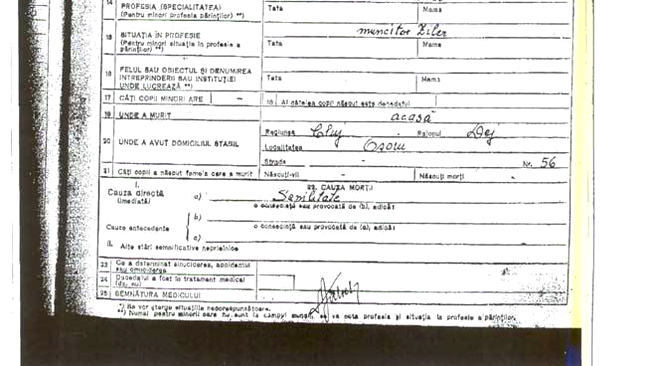 14 PROFESIA (SPECIALITATEA)
(Pentru minori profesia părinților) **)
Tata Mama
15 SITUAȚIA ÎN PROFESIE
(Pentru minori situația în profesie a părinților) **)
muncitor Ziler
Tata Mama
16 FELUL SAU OBIECTUL ȘI DENUMIREA
ÎNTREPRINDERII SAU INSTITUȚIEI
UNDE LUCREAZĂ **)
Tata Mama
17 CÂȚI COPII MINORI ARE - 18 Al câtelea copil născut este decedatul
19 UNDE A MURIT acasă
20 UNDE A AVUT DOMICILIUL STABIL
Regiunea Cluj Raionul Dej
Localitatea
Strada - Nr. 56
21 Câți copii a născut femeia care a murit Născuți-vii - Născuți morți -
22. CAUZA MORȚII
I.
Cauza directă
(imediată) a) Senilitate
o consecință sau provocată de (b), adică:
Cauze antecedente b)
o consecință sau provocată de (c), adică:
c)
II. Alte stări semnificative neprielnice
23 Ce a determinat sinuciderea, accidentul
sau omuciderea
24 Decedatul a fost în tratament medical
(da, nu)
25 SEMNĂTURA MEDICULUI
*) Se vor șterge situațiile necorespunzătoare.
**) Numai pentru minorii care nu sunt în câmpul muncii, se va nota profesia și situația în profesie a părinților.